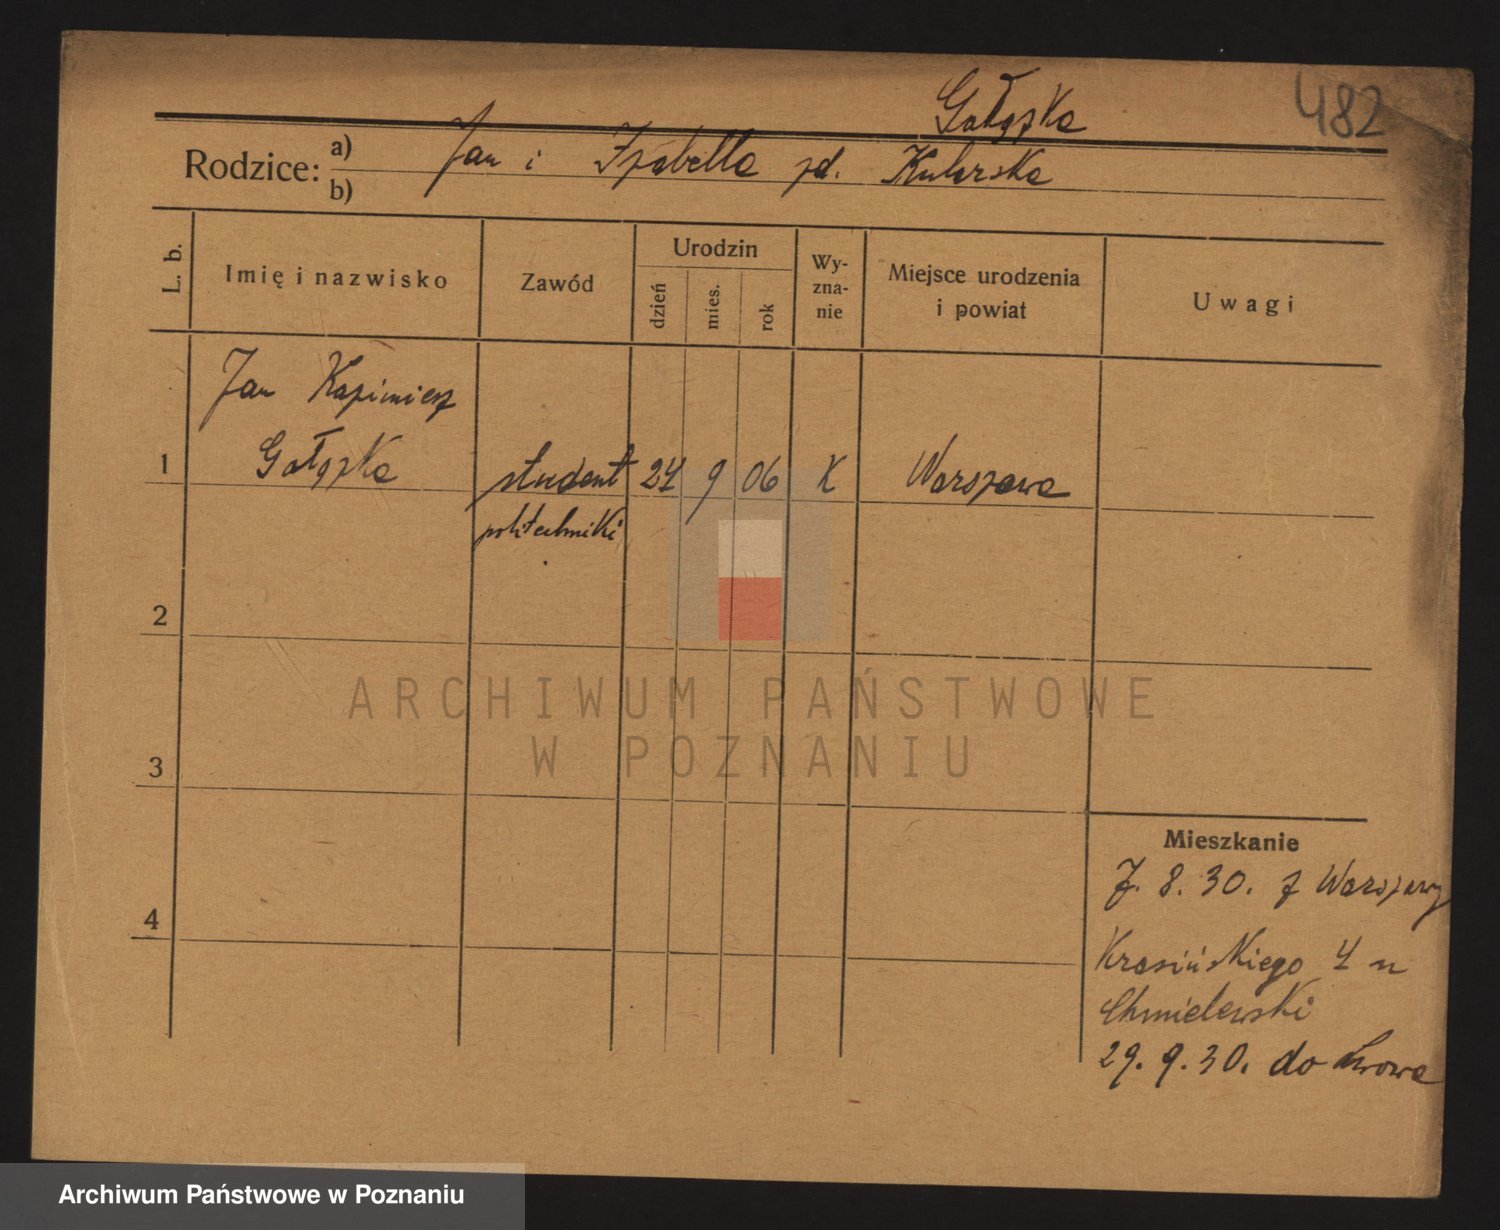 482
Gałązka
Rodzice: a) b) Jan i Izabella zd. Kularska
L. b. Imię i nazwisko Zawód Urodzin dzień mies. rok Wy-zna-nie Miejsce urodzenia i powiat Uwagi
Jan Kazimierz
1 Gałązka student 27 9 06 K Warszawa
politechniki
2
3
4
Mieszkanie
7. 8. 30. z Warszawy
Krasińskiego 4 u
Chmielewski
29. 9. 30. do Lwowa
ARCHIWUM PAŃSTWOWE
W POZNANIU
Archiwum Państwowe w Poznaniu